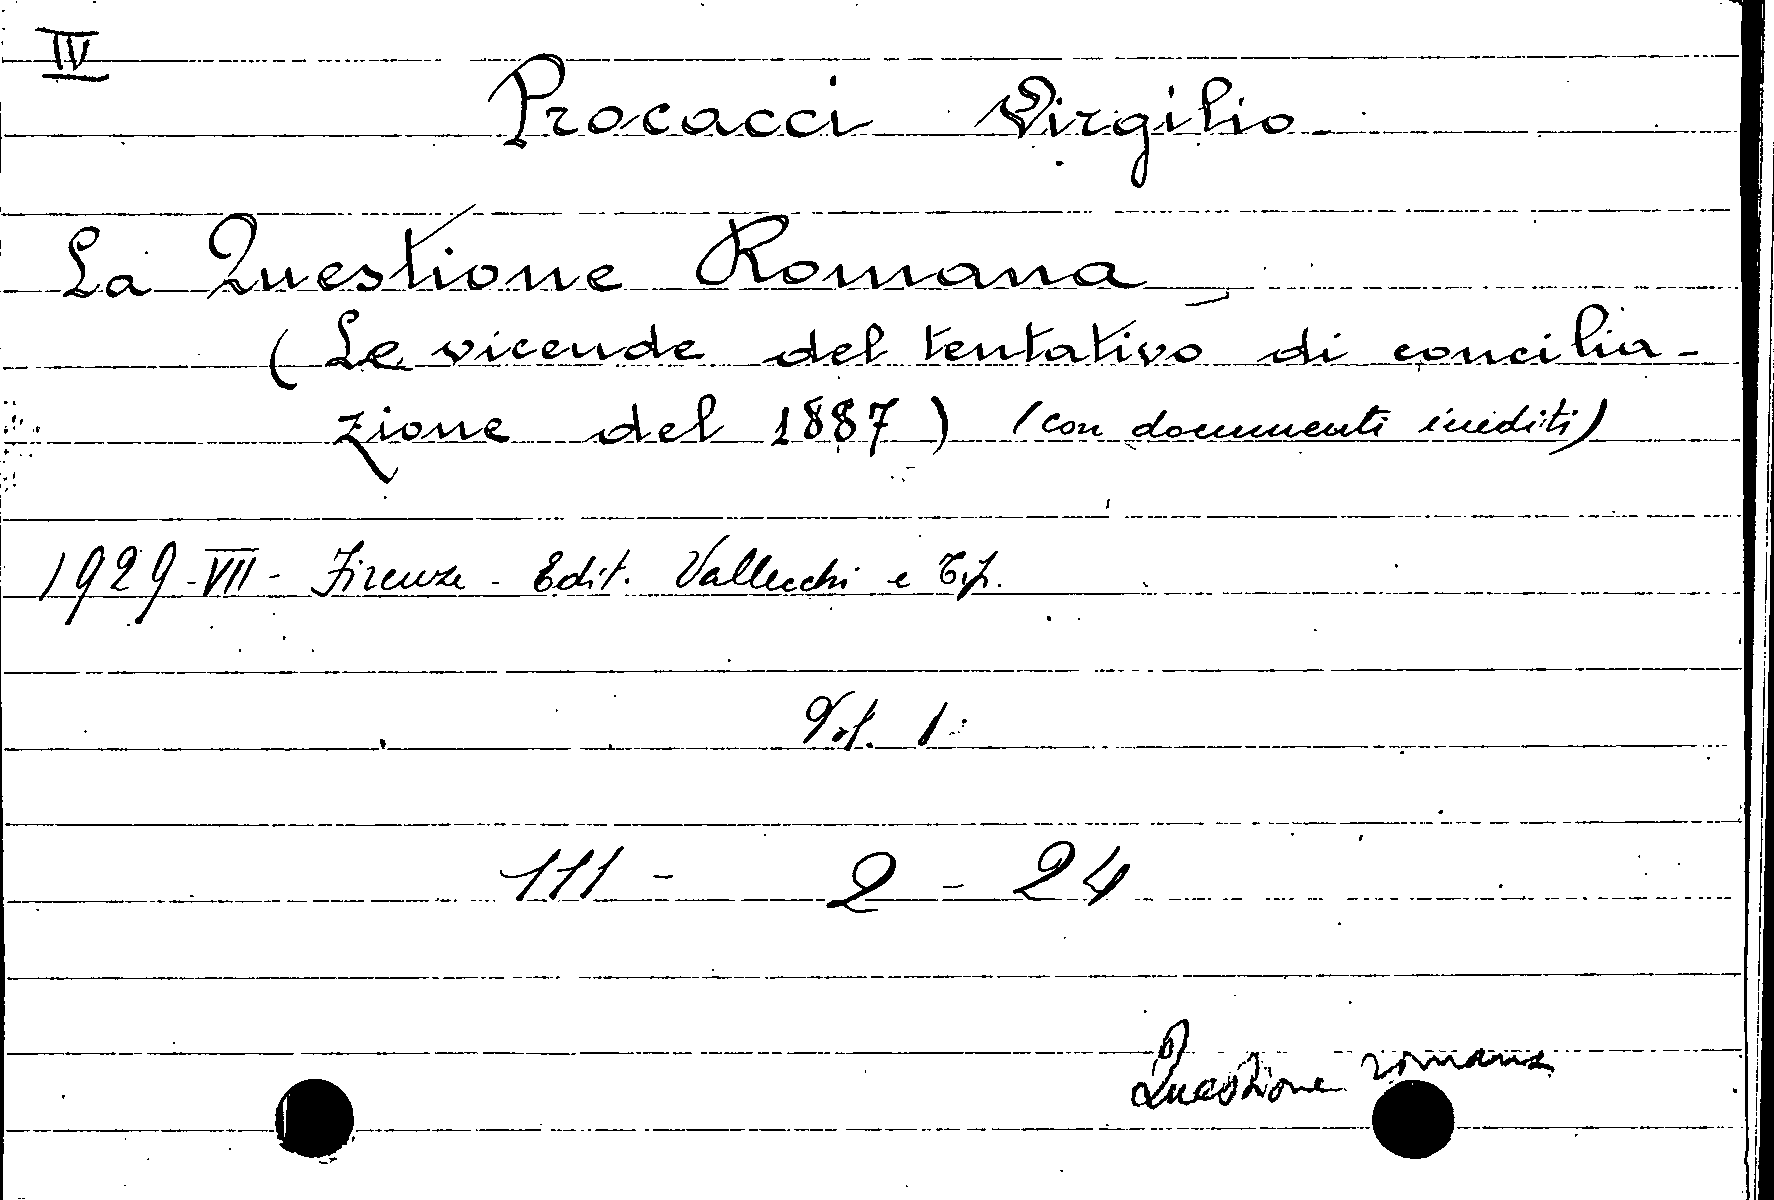 IV
Procacci Virgilio
La Questione Romana
(Le vicende del tentativo di concilia-
zione del 1887) (con documenti inediti)
1929-VII- Firenze - Edit. Vallecchi e Tip.
Vol. 1
111 - 2 - 24
Questione romana